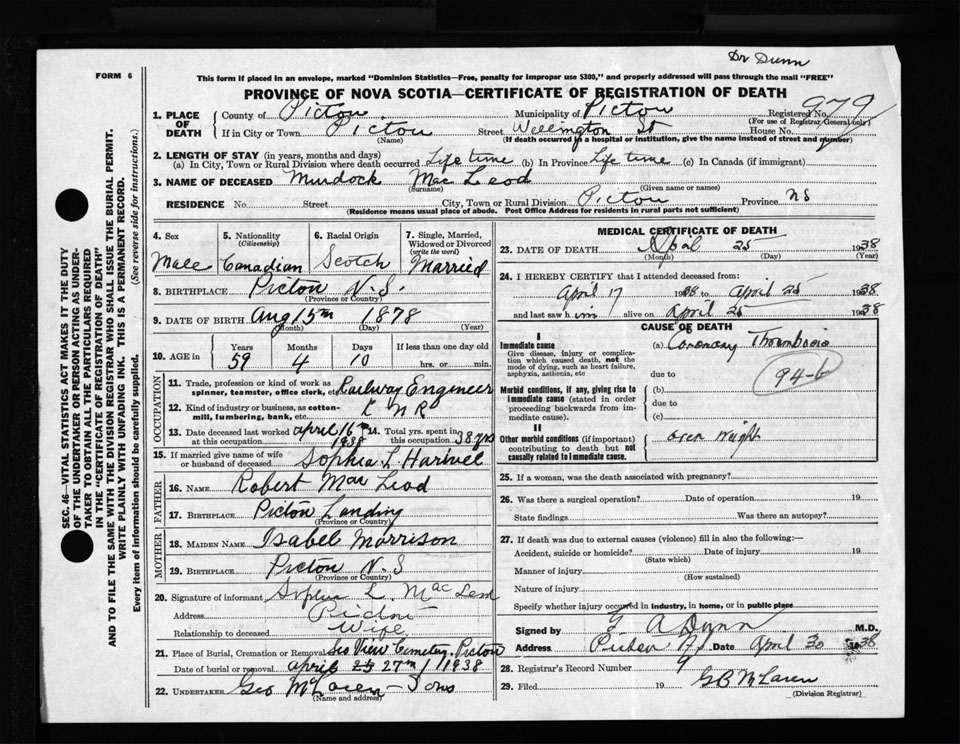 Dr Dunn
FORM 6
This form if placed in an envelope, marked "Dominion Statistics—Free, penalty for improper use $300," and properly addressed will pass through the mail "FREE"
PROVINCE OF NOVA SCOTIA—CERTIFICATE OF REGISTRATION OF DEATH
1. PLACE OF DEATH { County of Pictou. Municipality of Pictou Registered No. 979
(For use of Registrar General only)
If in City or Town Pictou Street Wellington St House No.
(Name) (If death occurred in a hospital or institution, give the name instead of street and number)
2. LENGTH OF STAY (in years, months and days)
(a) In City, Town or Rural Division where death occurred Life time (b) In Province Life time (c) In Canada (if immigrant)
3. NAME OF DECEASED Murdock Mac Leod
(Surname) (Given name or names)
RESIDENCE No. Street City, Town or Rural Division Pictou Province NS
(Residence means usual place of abode. Post Office Address for residents in rural parts not sufficient)
4. Sex Male
5. Nationality (Citizenship) Canadian
6. Racial Origin Scotch
7. Single, Married, Widowed or Divorced (write the word) Married
8. BIRTHPLACE Pictou N.S.
(Province or Country)
9. DATE OF BIRTH Aug 15th 1878
(Month) (Day) (Year)
10. AGE in { Years 59 Months 4 Days 10 If less than one day old
hrs. or min.
OCCUPATION
11. Trade, profession or kind of work as spinner, teamster, office clerk, etc. Railway Engineer
12. Kind of industry or business, as cotton-mill, lumbering, bank, etc. C N R
13. Date deceased last worked at this occupation april 16th 1938 14. Total yrs. spent in this occupation 38 yrs
15. If married give name of wife or husband of deceased Sophia L Harivel
FATHER
16. NAME Robert Mac Leod
17. BIRTHPLACE Pictou Landing
(Province or Country)
MOTHER
18. MAIDEN NAME Isabel Morrison
19. BIRTHPLACE Pictou N.S
(Province or Country)
20. Signature of informant Sophia L. MacLeod
Address Pictou
Relationship to deceased Wife
21. Place of Burial, Cremation or Removal Sea View Cemetery, Pictou
Date of burial or removal april 27th / 1938
22. UNDERTAKER Geo McLaren - Sons
(Name and address)
MEDICAL CERTIFICATE OF DEATH
23. DATE OF DEATH April 25 1938
(Month) (Day) (Year)
24. I HEREBY CERTIFY that I attended deceased from:
April 17 1938 to April 25 1938
and last saw him alive on April 25 1938
CAUSE OF DEATH
I
Immediate cause
Give disease, injury or complication which caused death, not the mode of dying, such as heart failure, asphyxia, asthenia, etc
(a) Coronary Thrombosis
due to
94-b
Morbid conditions, if any, giving rise to immediate cause (stated in order proceeding backwards from immediate cause).
(b)
due to
(c)
II
Other morbid conditions (if important) contributing to death but not causally related to immediate cause.
over weight
25. If a woman, was the death associated with pregnancy?
26. Was there a surgical operation? Date of operation 19
State findings Was there an autopsy?
27. If death was due to external causes (violence) fill in also the following:—
Accident, suicide or homicide? Date of injury 19
(State which)
Manner of injury
(How sustained)
Nature of injury
Specify whether injury occurred in industry, in home, or in public place
Signed by G A Dunn M.D.
Address Pictou N.S. Date April 30 1938
28. Registrar's Record Number 9
29. Filed 19 GB McLaren
(Division Registrar)
SEC. 46—VITAL STATISTICS ACT MAKES IT THE DUTY
OF THE UNDERTAKER OR PERSON ACTING AS UNDER-
TAKER TO OBTAIN ALL THE PARTICULARS REQUIRED
IN THE "CERTIFICATE OF REGISTRATION OF DEATH"
AND TO FILE THE SAME WITH THE DIVISION REGISTRAR WHO SHALL ISSUE THE BURIAL PERMIT.
WRITE PLAINLY WITH UNFADING INK. THIS IS A PERMANENT RECORD.
Every item of information should be carefully supplied. (See reverse side for instructions.)